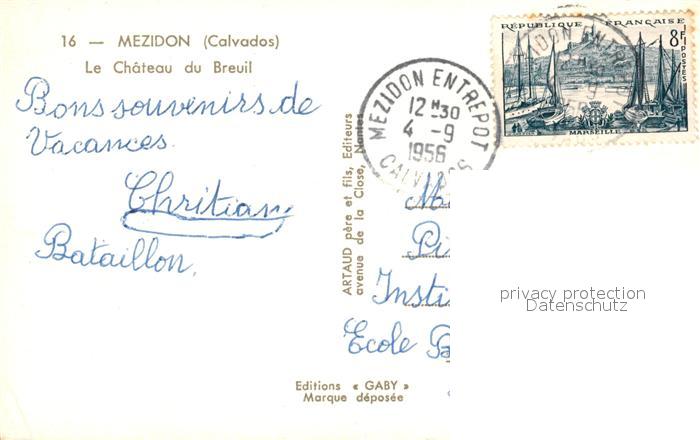 16 — MEZIDON (Calvados)
Le Château du Breuil
Bons souvenirs de
Vacances.
Chritian
Bataillon.
ARTAUD père et fils, Editeurs
avenue de la Close, Nantes
Editions « GABY »
Marque déposée
RÉPUBLIQUE FRANÇAISE
8F
POSTES
MARSEILLE
MEZIDON ENTREPOT
12 H 30
4 -9
1956
CALVADOS
M
Pi
Insti
Ecole B
privacy protection
Datenschutz